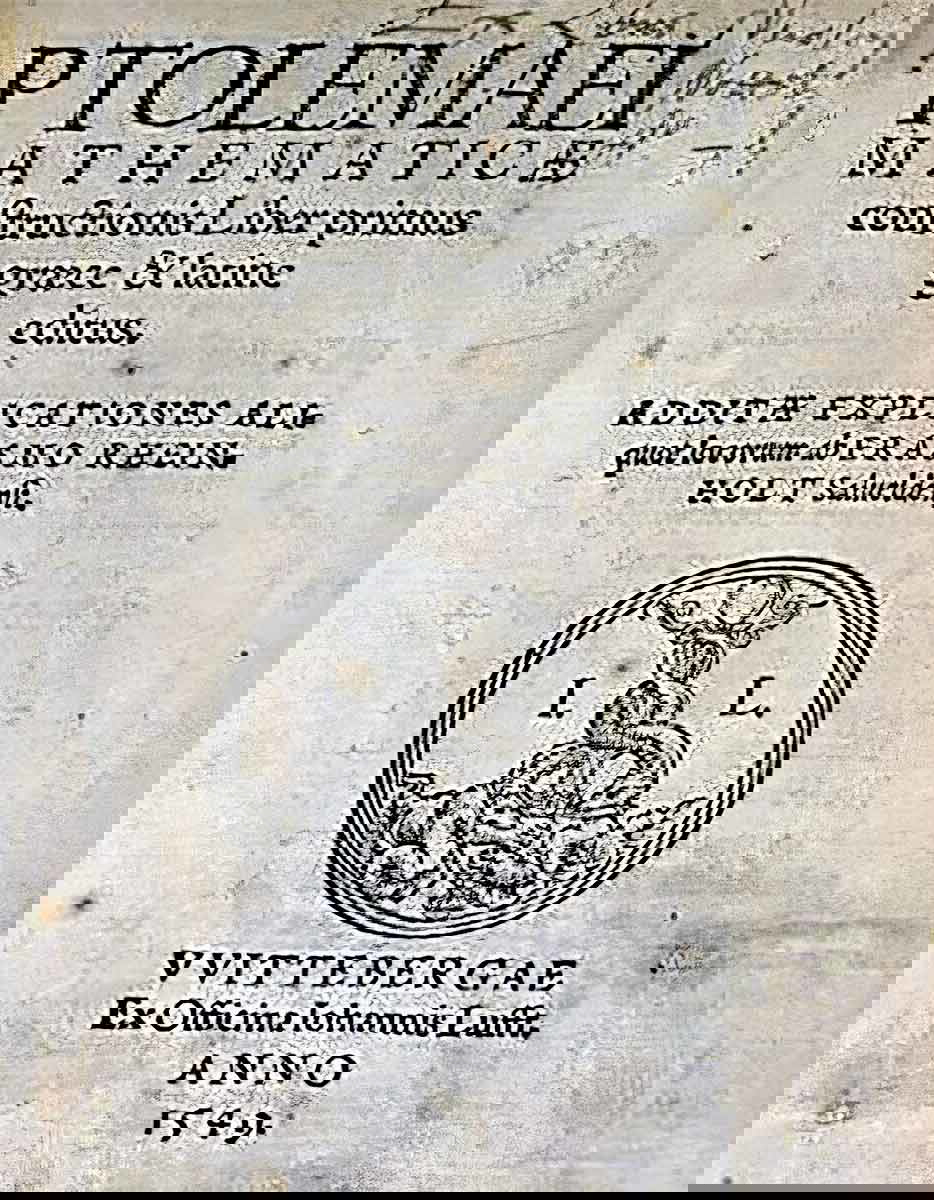 Ex Libris
PTOLEMAEI
MATHEMATICÆ
constructionis Liber primus
græce & latine
editus.
ADDITÆ EXPLICATIONES ALI-
quot locorum ab ERASMO RHEIN-
HOLT Salueldensi.
I. L.
VVITTEBERGAE
Ex Officina Iohannis Lufft.
ANNO
1549.